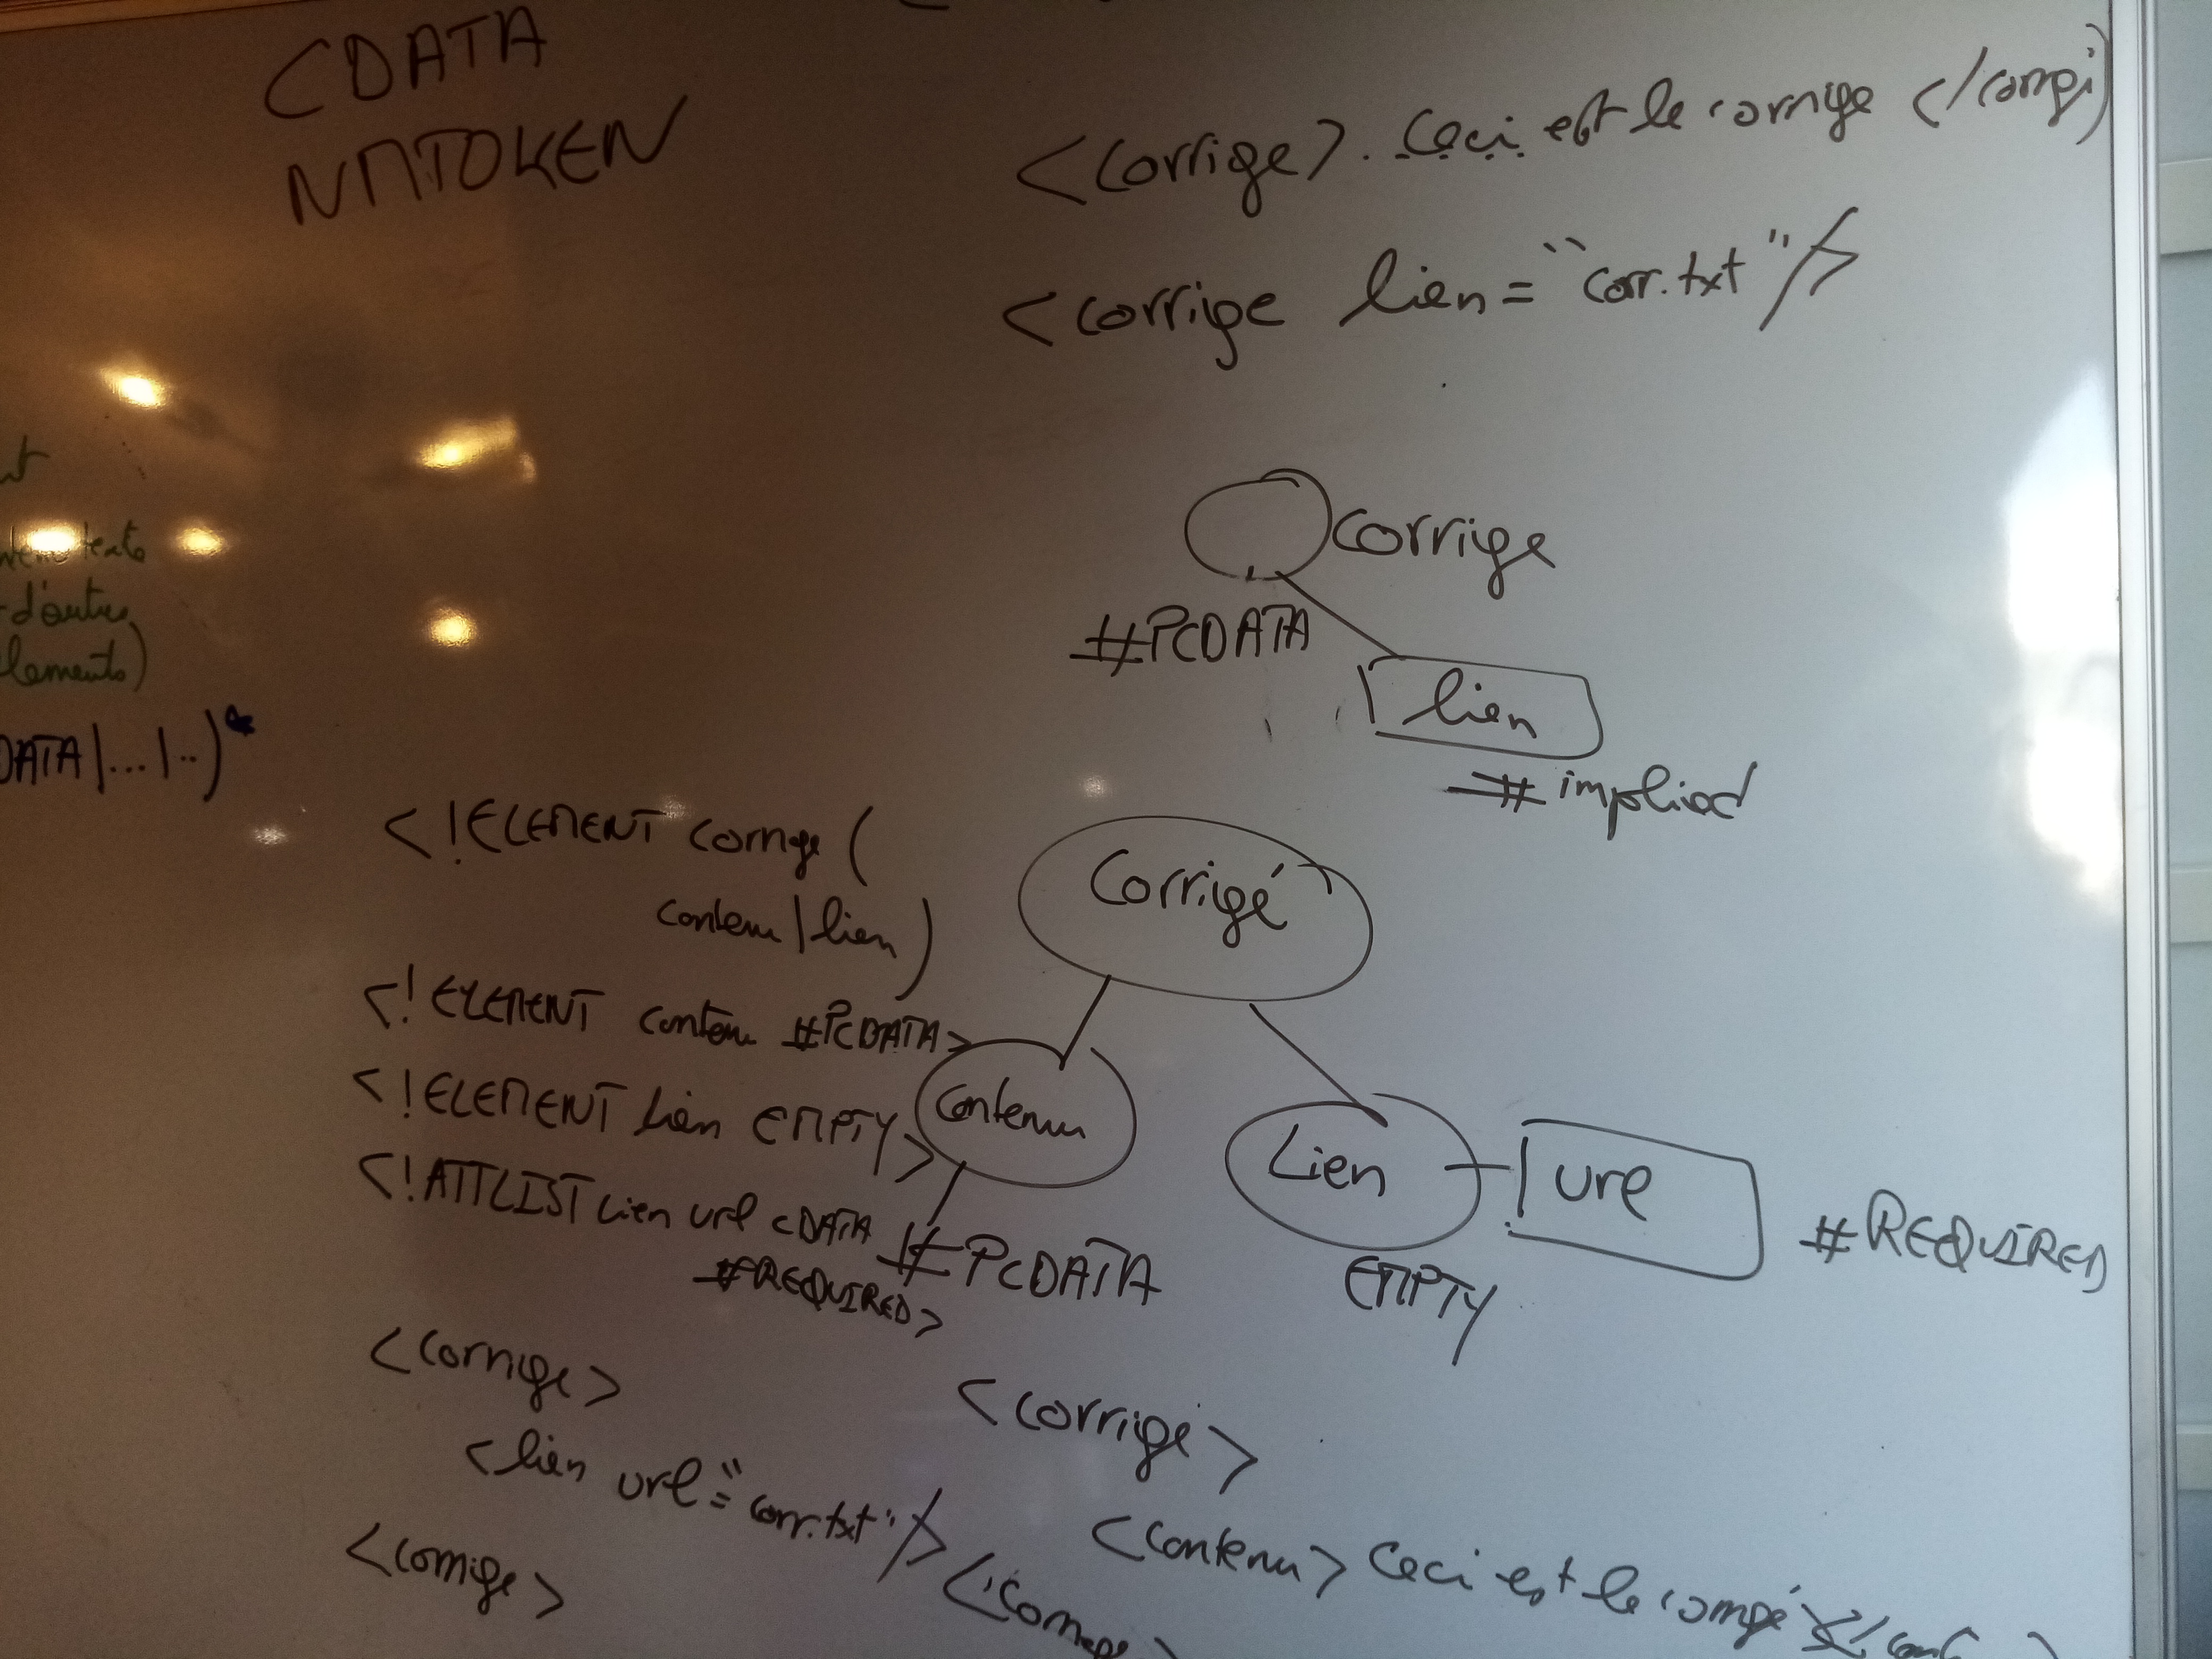 CDATA
NMTOKEN
<corrige> Ceci est le corrige </corrigé
<corrige lien = "corr.txt"/>
d'autres
DATA|...|..)*
corrige
#PCDATA
lien
#implied
<!ELEMENT corrige (
contenu | lien )
<!ELEMENT contenu #PCDATA>
<!ELEMENT lien EMPTY>
<!ATTLIST lien url CDATA
#REQUIRED>
Corrigé
contenu
#PCDATA
Lien
EMPTY
url
#REQUIRED
<corrige>
<lien url="corr.txt"/>
<corrige>
<corrigé>
<contenu> Ceci est le corrigé </cont
</corrige>